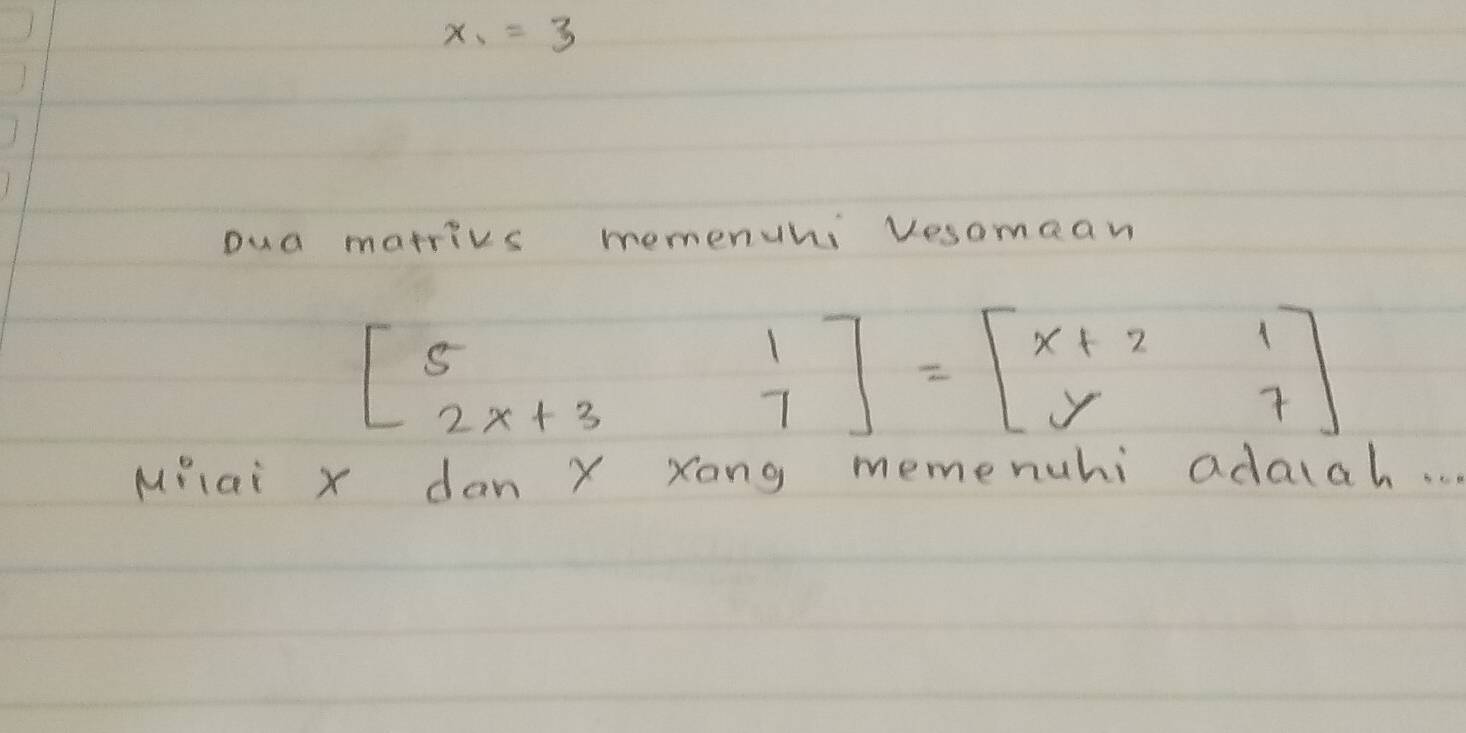 x₁ = 3
Dua matriks memenuhi kesamaan
[ 5 1 ] = [ x + 2 1 ]
[ 2x + 3 7 ] [ y 7 ]
Nilai x dan y yang memenuhi adalah ...